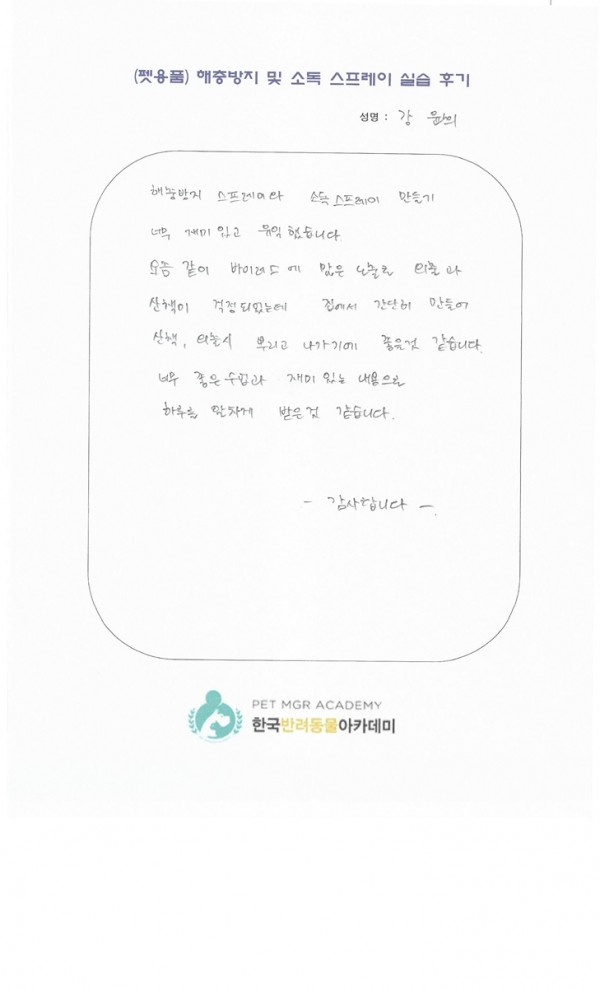 (펫용품) 해충방지 및 소독 스프레이 실습 후기
성명 : 강
해충방지 스프레이와 소독스프레이 만들기
너무 재미있고 유익했습니다.
요즘 같이 바이러스에 많은 노출로 외출과
산책이 걱정되었는데 집에서 간단히 만들어
산책, 외출시 뿌리고 나가기에 좋은것 같습니다.
너무 좋은수업과 재미있는 내용으로
하루를 알차게 받은것 같습니다.
- 감사합니다 -.
PET MGR ACADEMY
한국반려동물아카데미